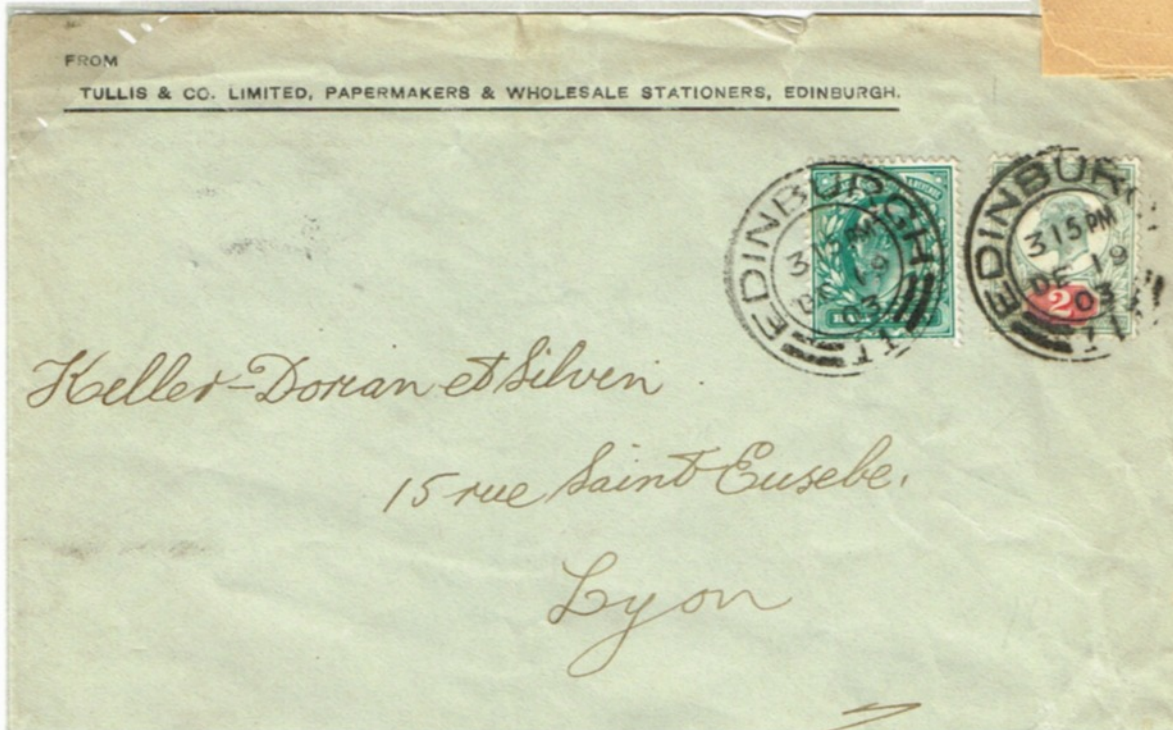 FROM
TULLIS & CO. LIMITED, PAPERMAKERS & WHOLESALE STATIONERS, EDINBURGH.
EDINBURGH
3 15 PM
DE 19
03
EDINBURGH
3 15 PM
DE 19
03
2
Keller-Dorian et Silvin
15 rue Saint Eusebe.
Lyon